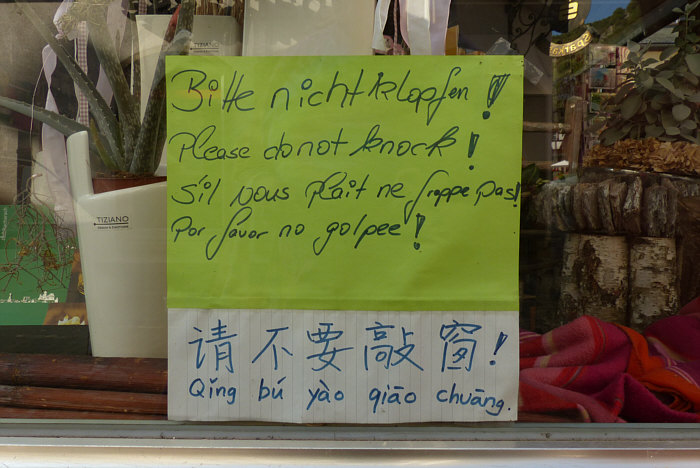 TIZIANO
Bitte nicht klopfen!
Please do not knock!
s'il vous plait ne frappe pas!
Por favor no golpee!
TIZIANO
请不要敲窗!
Qǐng bú yào qiāo chuāng.